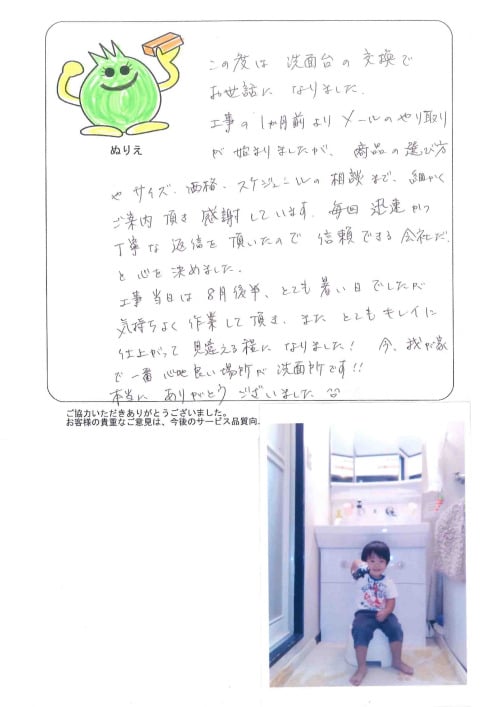 この度は 洗面台の交換で
お世話に なりました.
工事の1か月前より メールのやり取り
が 始まりましたが、商品の選び方
や サイズ、価格、スケジュールの相談まで、細かく
ご案内頂き 感謝しています. 毎回 迅速かつ
丁寧な 返信を 頂いたので 信頼できる 会社だ.
と 心を 決めました.
工事当日は 8月後半、とても 暑い日でしたが
気持ちよく 作業して 頂き、また とてもキレイに
仕上がって 見違える程に なりました! 今、我が家
で一番 心地良い場所が 洗面所です!!
本当に ありがとう ございました
ぬりえ
ご協力いただきありがとうございました。
お客様の貴重なご意見は、今後のサービス品質向